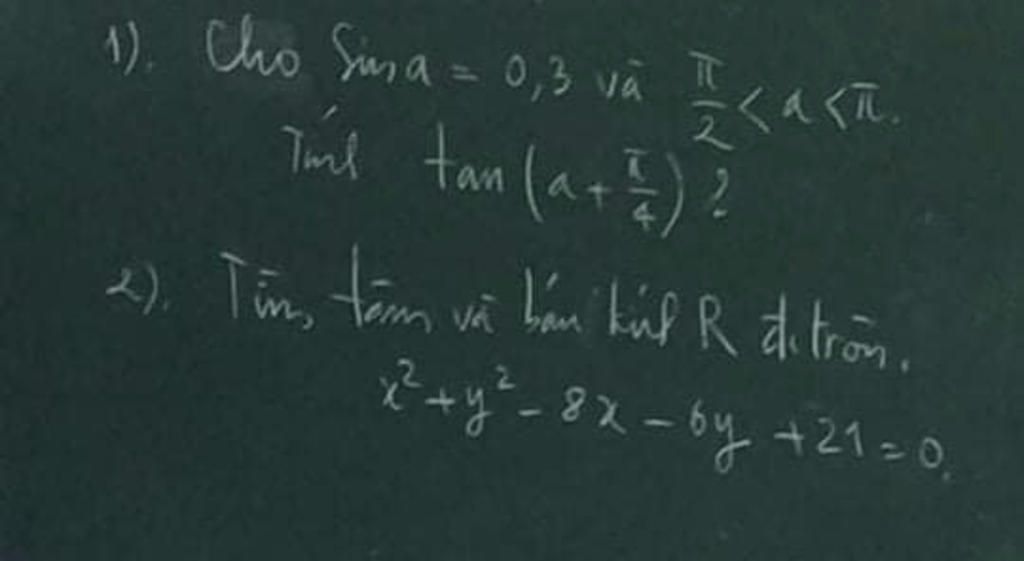 1). Cho Sin a = 0,3 và π/2 < a < π.
Tính tan(a + π/4) ?
2). Tìm tâm và bán kính R đ. tròn.
x² + y² - 8x - 6y + 21 = 0.